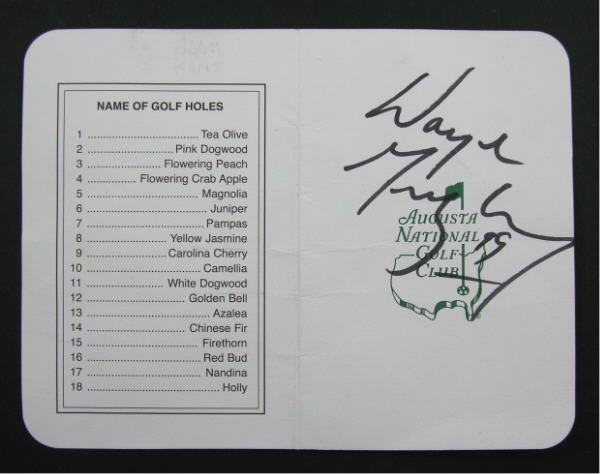 NAME OF GOLF HOLES
1 .................................. Tea Olive
2 .......................... Pink Dogwood
3 ...................... Flowering Peach
4 ............... Flowering Crab Apple
5 .................................. Magnolia
6 .................................... Juniper
7 ................................... Pampas
8 ........................ Yellow Jasmine
9 ....................... Carolina Cherry
10 .................................. Camellia
11 ........................ White Dogwood
12 .............................. Golden Bell
13 ..................................... Azalea
14 .............................. Chinese Fir
15 .................................. Firethorn
16 .................................. Red Bud
17 .................................. Nandina
18 ........................................ Holly
Wayne
AUGUSTA
NATIONAL
GOLF
CLUB